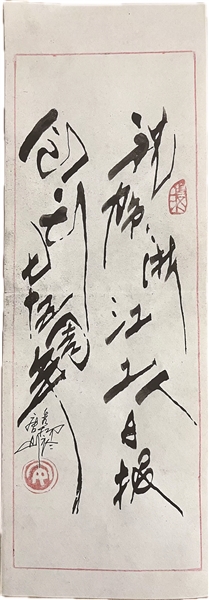 祝贺浙江工人日报
创刊七十五周年